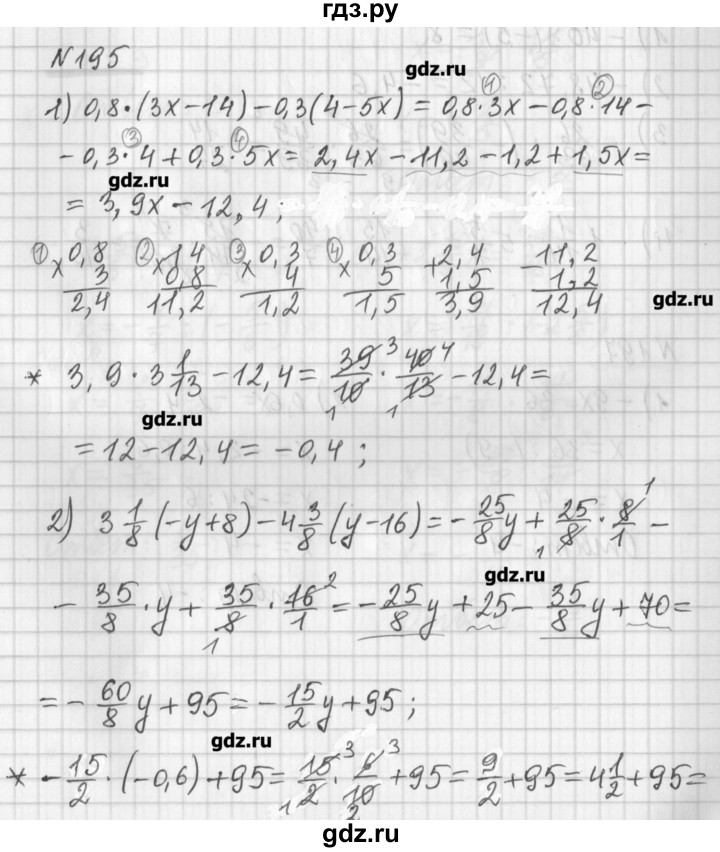 гдз.ру
N195
gdz.ru
1) 0,8·(3x−14)−0,3(4−5x)=0,8·3x−0,8·14−
−0,3·4+0,3·5x=2,4x−11,2−1,2+1,5x=
gdz.ru
=3,9x−12,4;
① × 0,8 3 2,4 ② × 14 0,8 11,2 ③ × 0,3 4 1,2 ④ × 0,3 5 1,5 + 2,4 1,5 3,9 − 11,2 1,2 12,4
gdz.ru
* 3,9·3 1/13−12,4=39/10·40/13−12,4=
gdz.ru
=12−12,4=−0,4;
2) 3 1/8(−y+8)−4 3/8(y−16)=−25/8y+25/8·8/1−
gdz.ru
−35/8·y+35/8·16/1=−25/8y+25−35/8y+70=
=−60/8y+95=−15/2y+95;
gdz.ru
* −15/2·(−0,6)+95=15/2·6/10+95=9/2+95=4 1/2+95=
gdz.ru